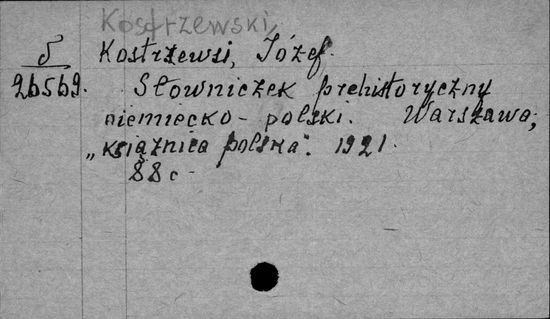 Kostrzewski
Б Kostrzewsi, Józef.
26569. Słowniczek prehistoryczny
niemiecko-polski. Warszawa,
„książnica polska". 1921.
88 c.